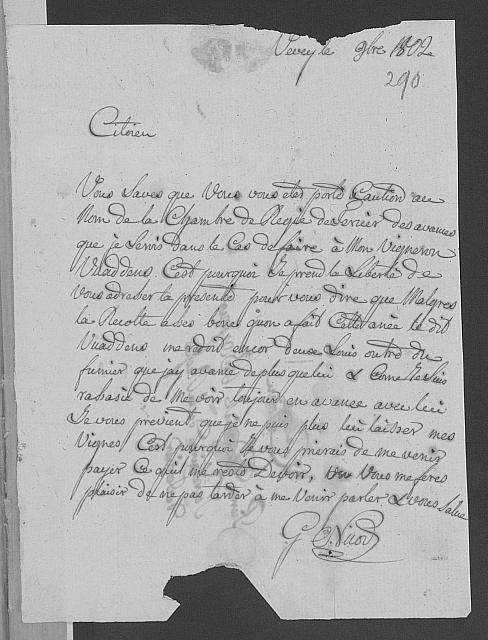 Vevey le 9bre 1802
290
Citoien
Vous Saves que Vous vous etes porté Caution au
Nom de la Chambre de Regie de Vevey des avances
que je serois dans le Cas de faire à Mon Vigneron
Vuaddens. C'est pourquoi Je prend la Liberté de
vous adresser la presente pour vous dire que Malgres
la Recolte asses bone qu'on a fait Cette anée le dit
Vuaddens me redoit encor deux Louis outre du
fumier que j'ay avancé de plus que lui & Come Je Suis
rassasié de Me voir toujour en avance avec lui
Je vous previent que je ne puis plus lui laisser mes
Vignes C'est pourquoi Je vous prierais de me venir
payer Ce qu'il me reste Devoir, Vous me feres
plaisir de ne pas tarder à me Venir parler & vous Salue
G Nicod